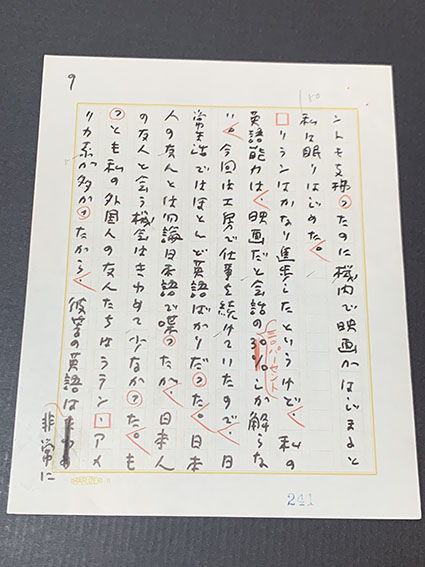 9
ントも支払ったのに機内で映画がはじまると
私は眠りはじめた。
リランはかなり進歩したというけど、私の
英語能力は、映画だと会話の30%しか解らな
三〇パーセント
い。今回は工房で仕事を続けていたので、日
常生活ではほとんど英語ばかりだった。日本
人の友人とは勿論日本語で喋ったが、日本人
の友人と会う機会はきわめて少なかった。も
っとも私の外国人の友人たちはラテン・アメ
リカ系が多かったから、彼等の英語は
非常に
241